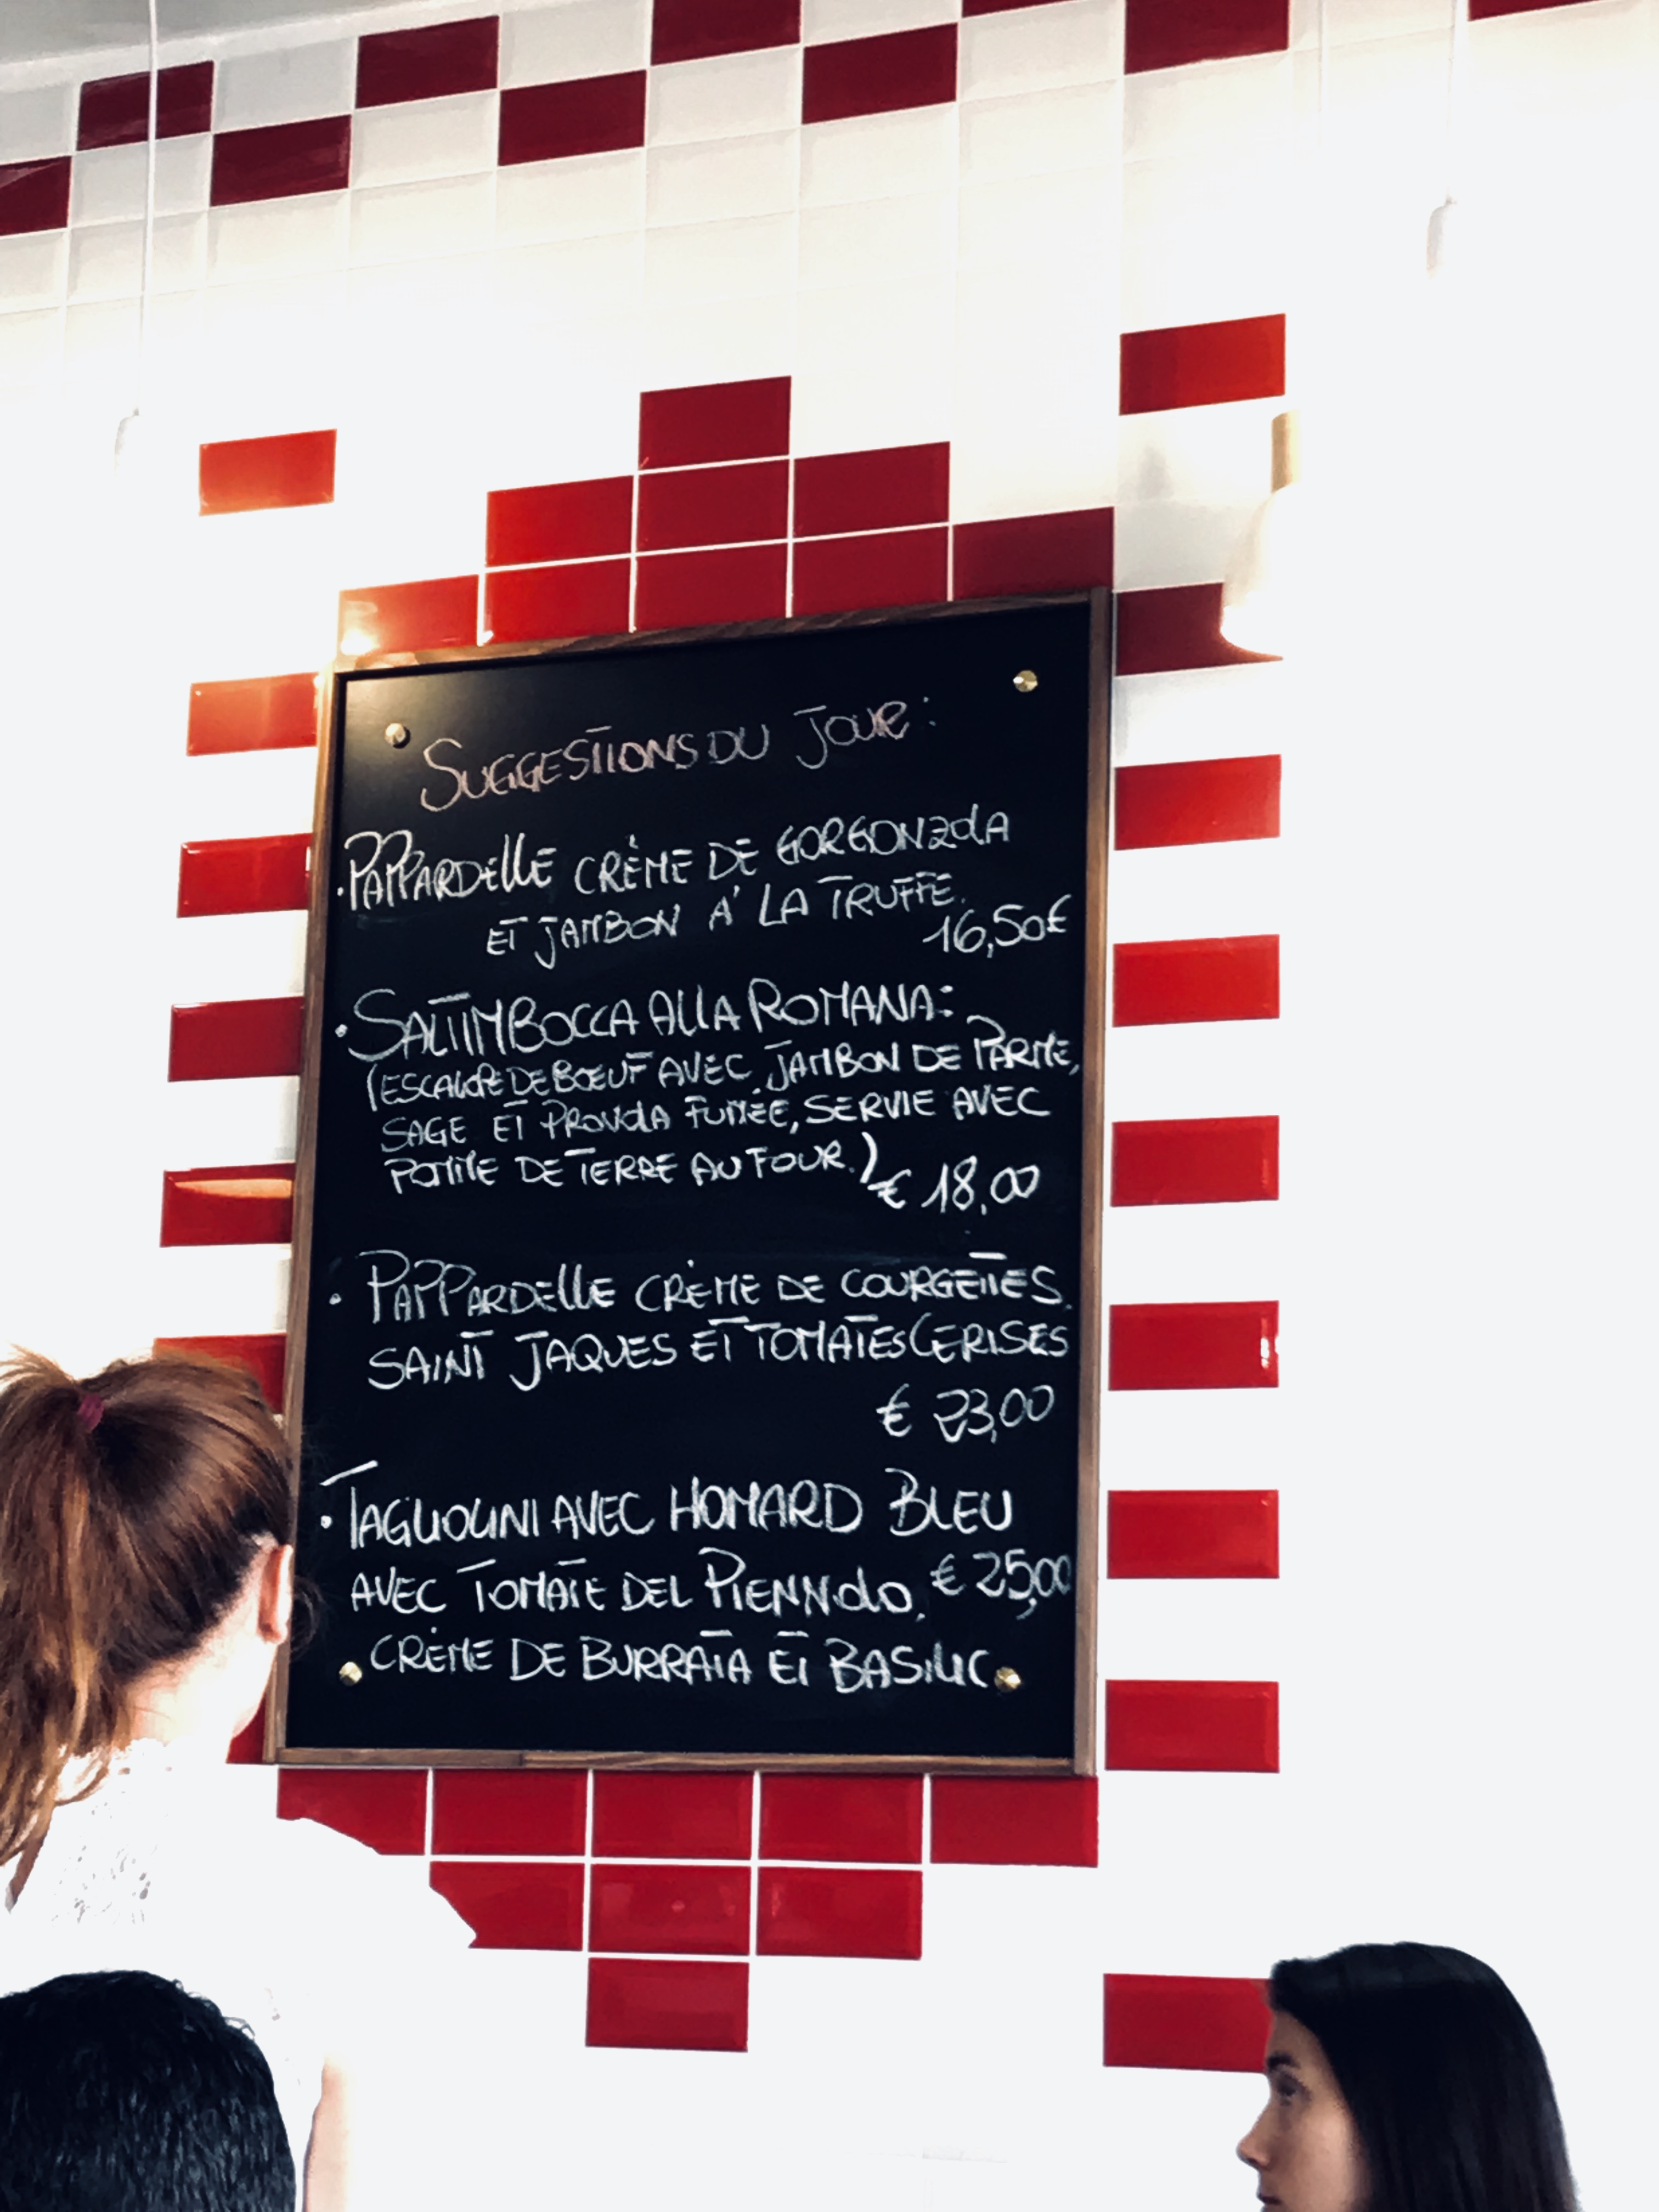 SUGGESTIONS DU JOUR:
• PAPPARDELLE CRÈME DE GORGONZOLA
ET JAMBON À LA TRUFFE.
16,50€
• SALTIMBOCCA ALLA ROMANA:
(ESCALOPE DE BŒUF AVEC JAMBON DE PARME,
SAGE ET PROVOLA FUMÉE, SERVIE AVEC
POMME DE TERRE AU FOUR.)
€ 18,00
• PAPPARDELLE CRÈME DE COURGETTES.
SAINT JAQUES ET TOMATES CERISES
€ 23,00
• TAGLIOLINI AVEC HOMARD BLEU
AVEC TOMATE DEL PIENNOLO, € 25,00
CRÈME DE BURRATA ET BASILIC